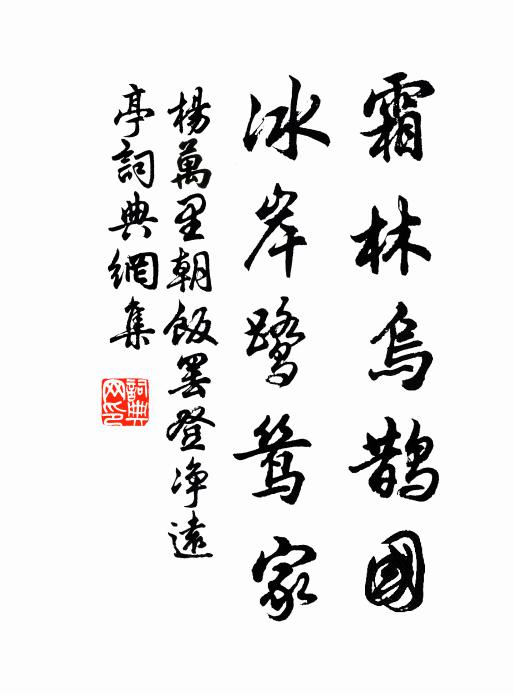 霜林烏鵲國
冰岸鷺鷥家
楊萬里朝飯罷登净遠
亭詞典網集
詞典
网印